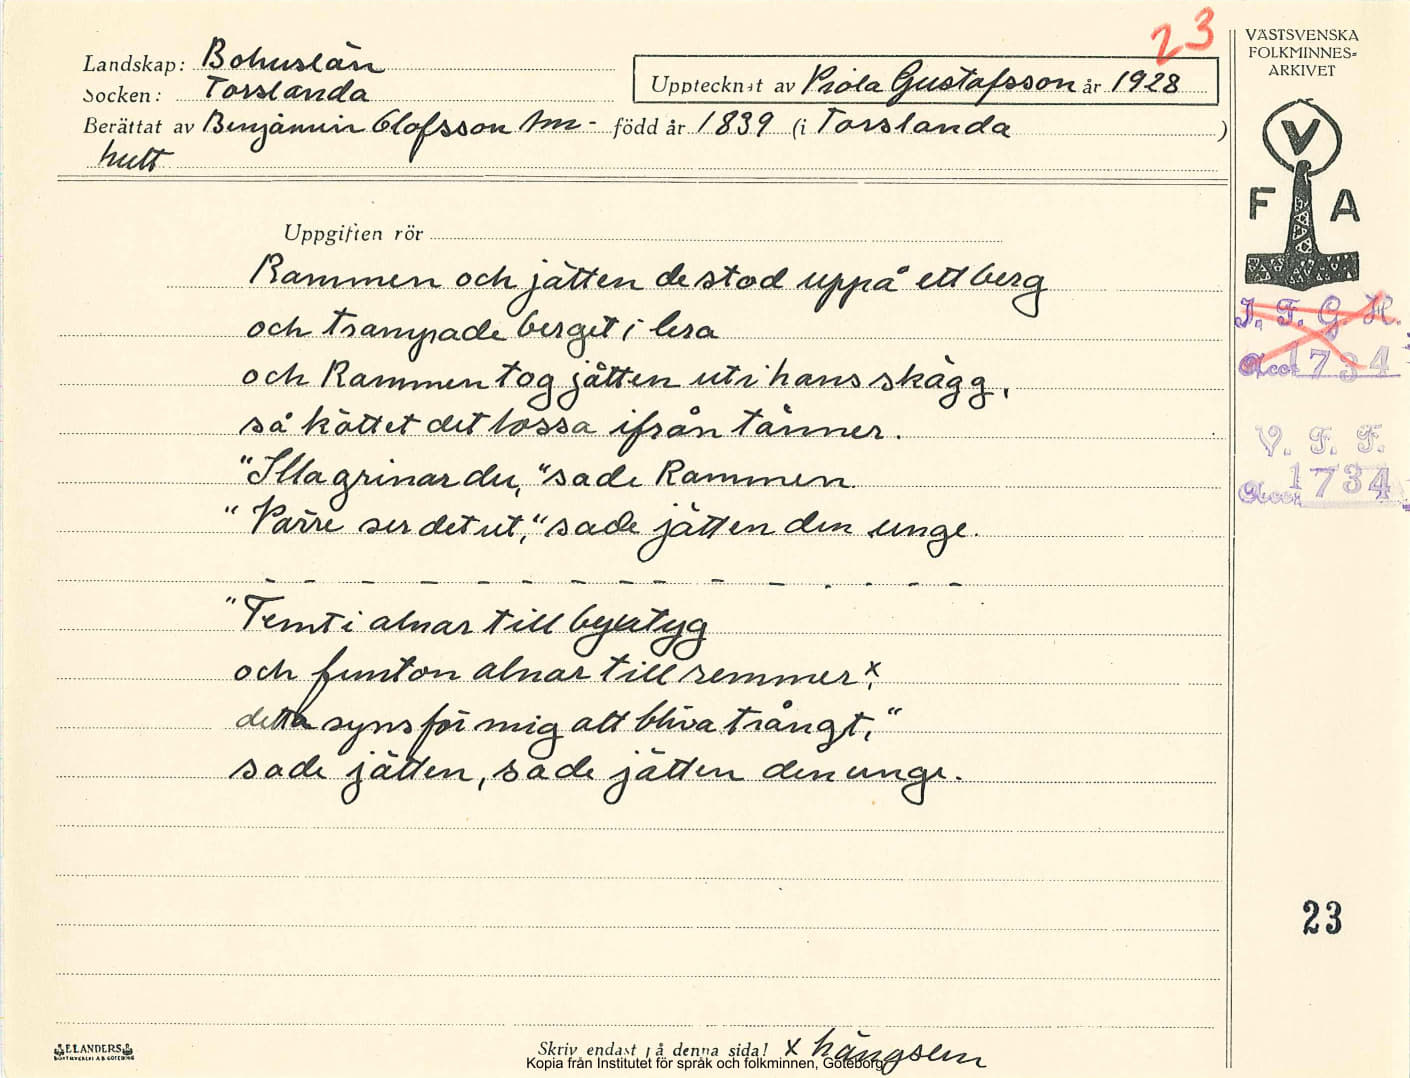 23
Landskap: Bohuslän
Socken: Torslanda
Upptecknat av Viola Gustafsson år 1928
Berättat av Benjamin Olofsson Am-
hutt
född år 1839 (i Torslanda )
Uppgiften rör
Rammen och jätten de stod uppå ett berg
och trampade berget i lera
och Rammen tog jätten uti hans skägg,
så köttet det lossa ifrån tänner.
"Illa grinar du," sade Rammen.
"Värre ser det ut," sade jätten den unge.
"Femti alnar till byxtyg
och funton alnar till remmer x,
detta syns för mig att bliva trångt,"
sade jätten, sade jätten den unge.
ELANDERS
Skriv endast på denna sida!
x hängslen
Kopia från Institutet för språk och folkminnen, Göteborg
VÄSTSVENSKA
FOLKMINNES-
ARKIVET
V
F A
I. F. G. H.
Acc: 1734
V. F. F.
Acc: 1734
23